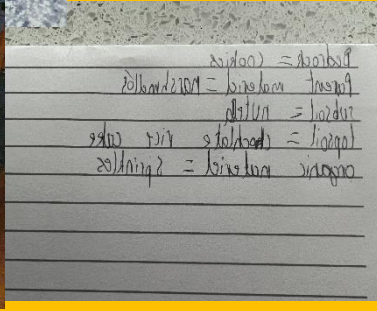 Bedrock = cookies
Parent material = marshmallos
subsoil = nutella
topsoil = chochlate rice cake
organic material = sprinkles